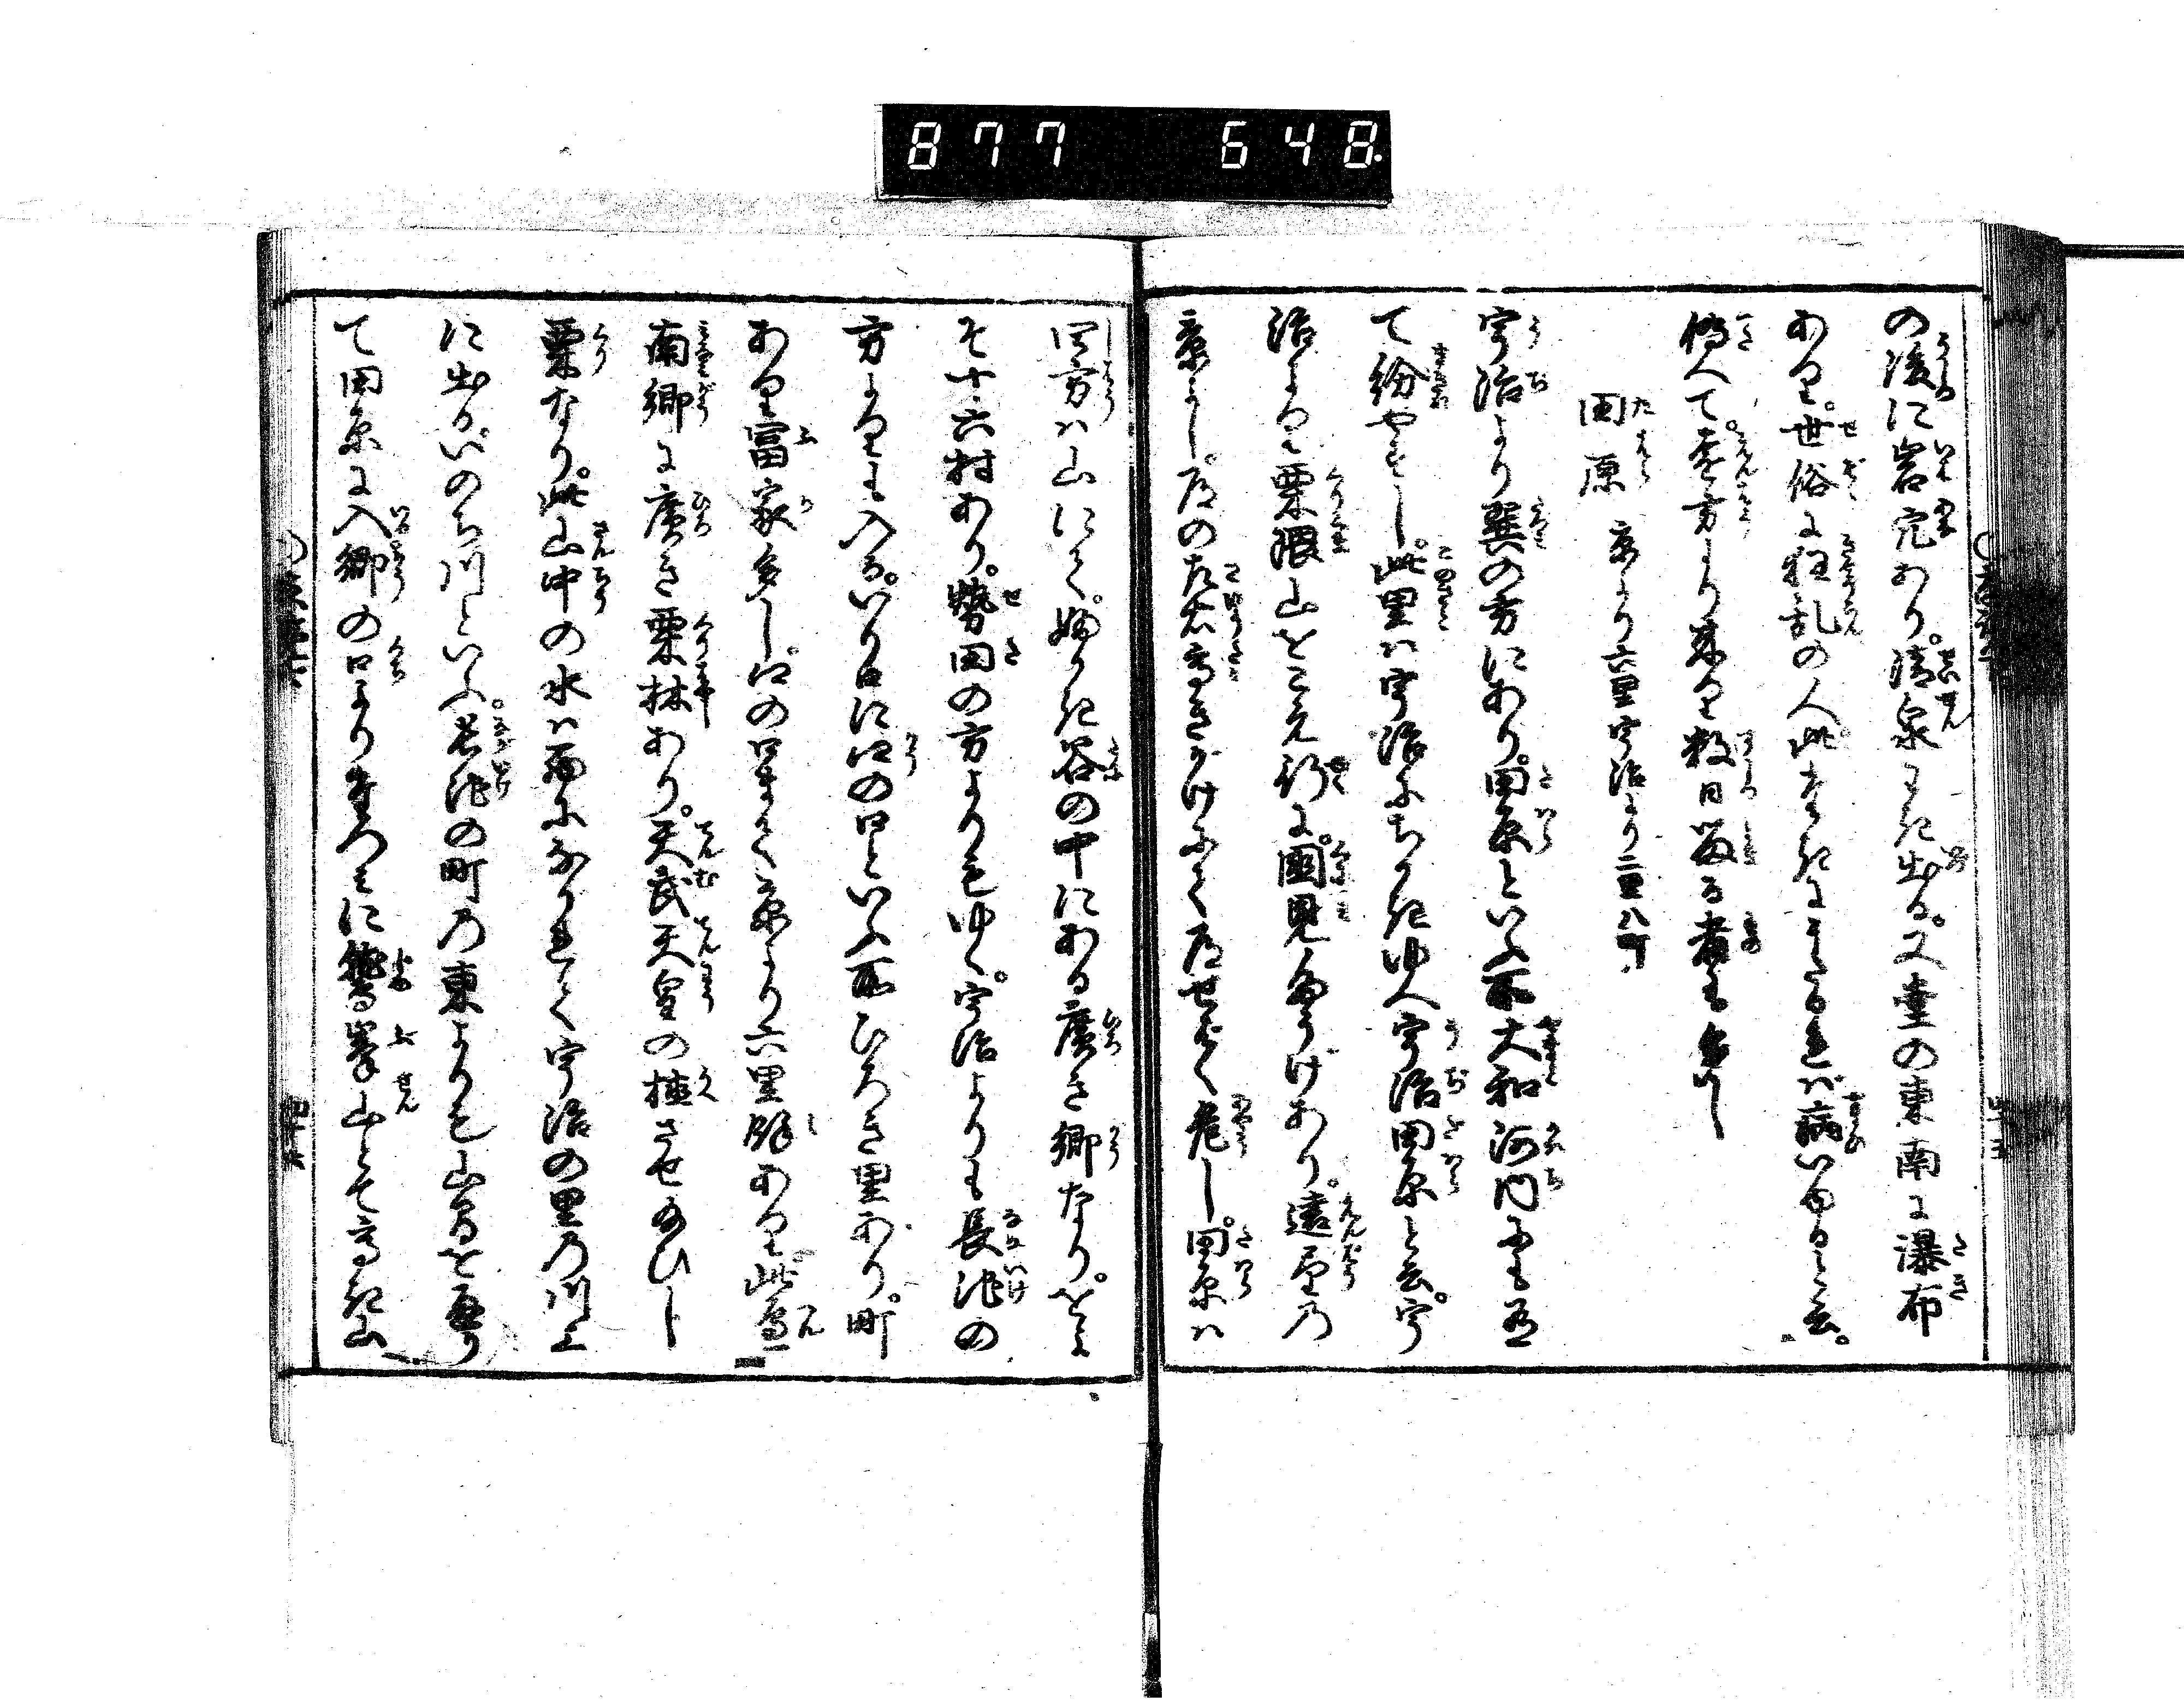 877 648.
の後に岩穴あり。清泉わき出る。又堂の東南に瀑布
あり。世俗に狂乱の人此たきにうたるれば病いゆると云。
伝へて。遠方より来り数日留る者も多し
田原 京より六里宇治より二里八町
宇治より巽の方にあり。田原といふ所大和河内にも有
て紛やすし。此里ハ宇治にちかきゆへ宇治田原と云。宇
治より栗隈山をこえ行に。国見たうげあり。遠望乃
景よし。道の左右高きがけにて道せばく危し。田原ハ
四方ハ山にて。ふかき谷の中にある広き郷なり。をよ
そ十六村あり。勢田の方よりもゆく。宇治よりも長池の
方よりも入る。いり口に江の口といふ所ひろき里あり。町
あり富家多し。江の口まで京より六里餘あり此辺
南郷に広き栗林あり。天武天皇の植させ給ひし
栗なり。此山中の水ハ西にながれて宇治の里乃川上
に出るいのち川といふ。長池の町乃東よりも山間を通り
て田原に入郷の口よりきたミに鷲峯山とて高き山